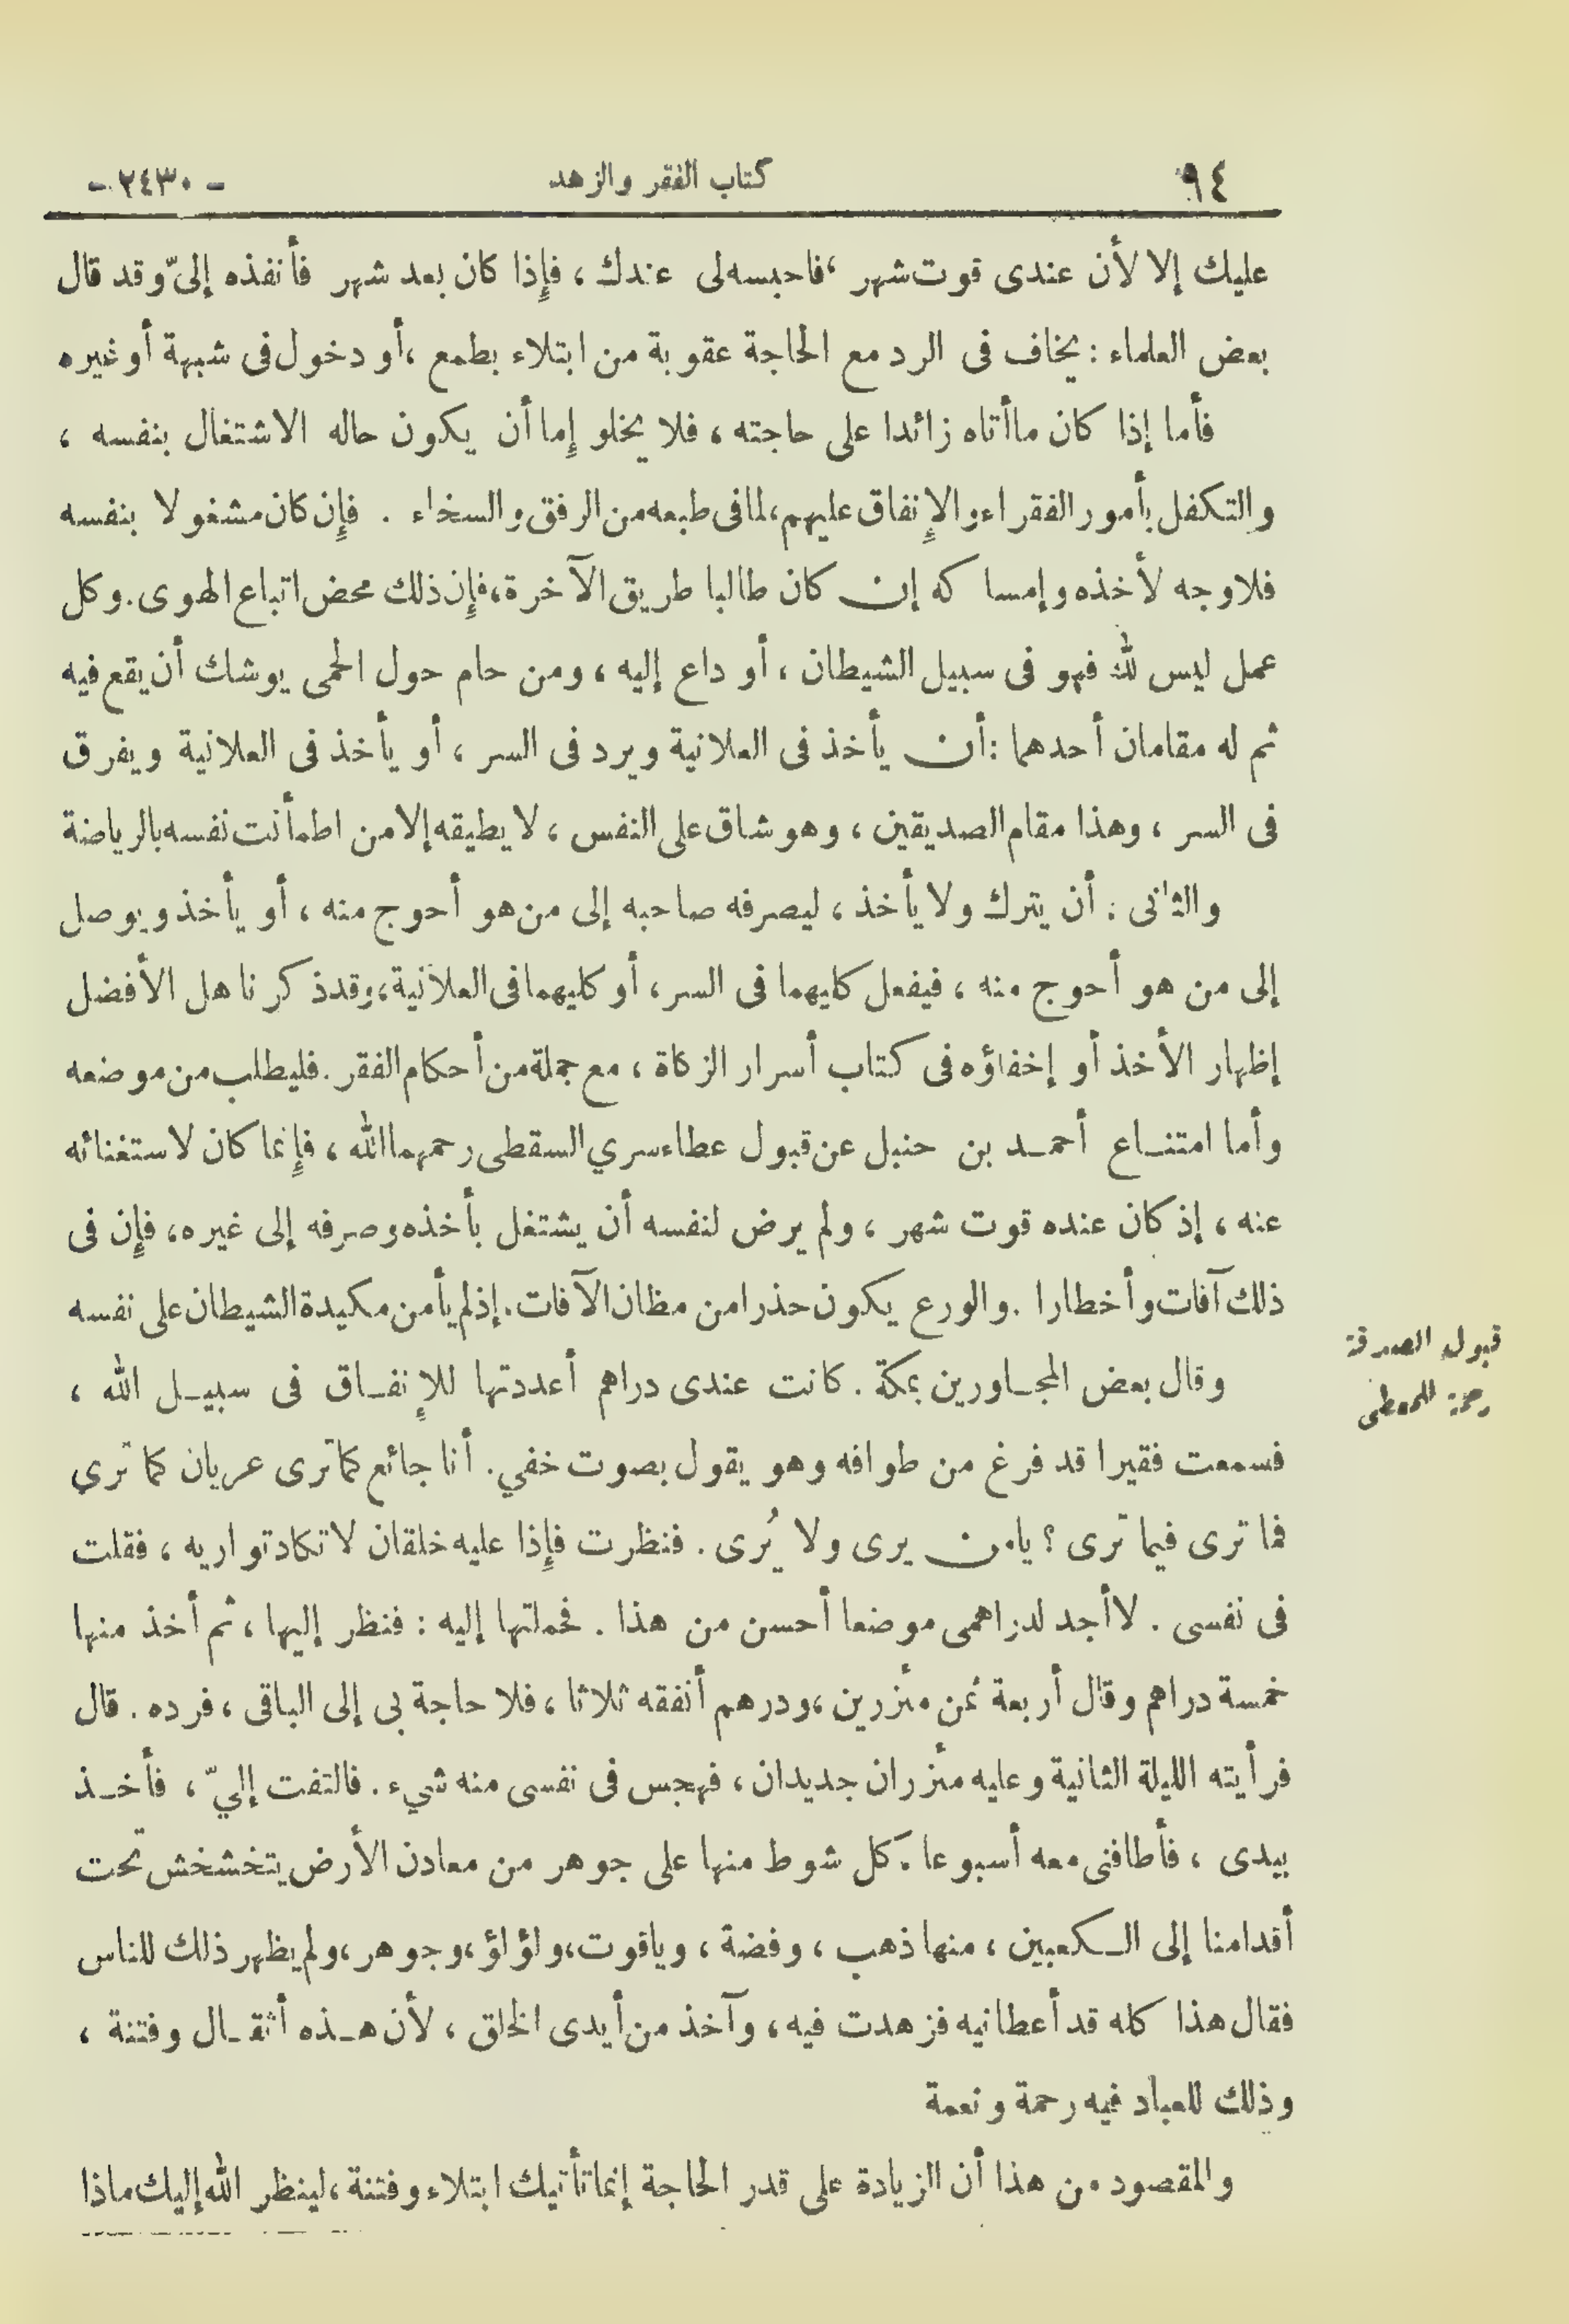 ٩٤ كتاب الفقر والزهد - ٢٤٣٠ -
عليك إلا لأن عندى قوت شهر ، فاحبسه لى عندك ، فإذا كان بعد شهر فأنفذه إلىّ وقد قال
بعض العلماء : يخاف فى الرد مع الحاجة عقوبة من ابتلاء بطمع ، أو دخول فى شبهة أو غيره
فأما إذا كان ما أتاه زائدا على حاجته ، فلا يخلو إما أن يكون حاله الاشتغال بنفسه ،
والتكفل بأمور الفقراء والإنفاق عليهم ، لما فى طبعه من الرفق والسخاء . فإن كان مشغولا بنفسه
فلا وجه لأخذه وإمساكه إن كان طالبا طريق الآخرة ، فإن ذلك محض اتباع الهوى . وكل
عمل ليس لله فهو فى سبيل الشيطان ، أو داع إليه ، ومن حام حول الحمى يوشك أن يقع فيه
ثم له مقامان أحدهما : أن يأخذ فى العلانية ويرد فى السر ، أو يأخذ فى العلانية ويفرق
فى السر ، وهذا مقام الصديقين ، وهو شاق على النفس ، لا يطيقه إلا من اطمأنت نفسه بالرياضة
والثانى : أن يترك ولا يأخذ ، ليصرفه صاحبه إلى من هو أحوج منه ، أو يأخذ ويوصل
إلى من هو أحوج منه ، فيفعل كليهما فى السر ، أو كليهما فى العلانية ، وقد ذكرنا هل الأفضل
إظهار الأخذ أو إخفاؤه فى كتاب أسرار الزكاة ، مع جملة من أحكام الفقر . فليطلب من موضعه
وأما امتنـاع أحمـد بن حنبل عن قبول عطاء سري السقطى رحمهما الله ، فإنما كان لاستغنائه
عنه ، إذ كان عنده قوت شهر ، ولم يرض لنفسه أن يشتغل بأخذه وصرفه إلى غيره ، فإن فى
ذلك آفات وأخطارا . والورع يكون حذرا من مظان الآفات . إذ لم يأمن مكيدة الشيطان على نفسه
قبول الصدقة
رحمة للمعطى
وقال بعض المجـاورين بمكة . كانت عندى دراهم أعددتها للإنفـاق فى سبيـل الله ،
فسمعت فقيرا قد فرغ من طوافه وهو يقول بصوت خفي . أنا جائع كما ترى عريان كما ترى
فما ترى فيما ترى ؟ يا من يرى ولا يُرى . فنظرت فإذا عليه خلقان لا تكاد تواريه ، فقلت
فى نفسى . لا أجد لدراهمى موضعا أحسن من هذا . فحملتها إليه : فنظر إليها ، ثم أخذ منها
خمسة دراهم وقال أربعة ثمن مئزرين ، ودرهم أنفقه ثلاثا ، فلا حاجة بى إلى الباقى ، فرده . قال
فرأيته الليلة الثانية وعليه مئزران جديدان ، فهجس فى نفسى منه شيء . فالتفت إليّ ، فأخـذ
بيدى ، فأطافنى معه أسبوعا . كل شوط منها على جوهر من معادن الأرض يتخشخش تحت
أقدامنا إلى الـكعبين ، منها ذهب ، وفضة ، وياقوت ، ولؤلؤ ، وجوهر ، ولم يظهر ذلك للناس
فقال هذا كله قد أعطانيه فزهدت فيه ، وآخذ من أيدى الخلق ، لأن هـذه أثقـال وفتنة ،
وذلك للعباد فيه رحمة ونعمة
والمقصود من هذا أن الزيادة على قدر الحاجة إنما تأتيك ابتلاء وفتنة ، لينظر الله إليك ماذا